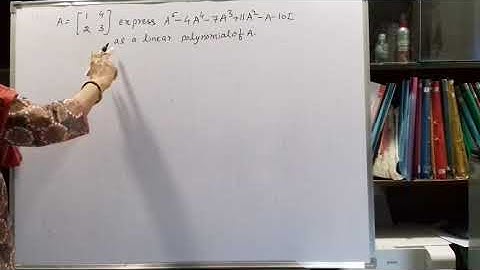 A = [1 4 2 3] express A⁵-4A⁴-7A³+11A²-A-10I
as a linear polynomial of A.